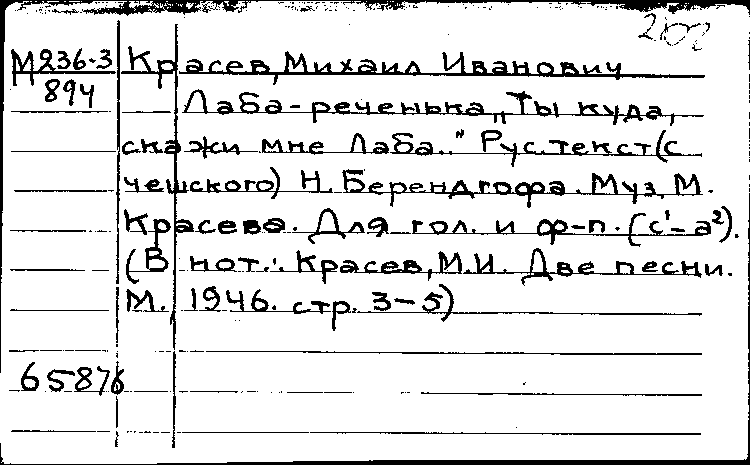 2102
М236-3 Красев, Михаил Иванович
894 Лаба-реченька „Ты куда,
скажи мне Лаба.." Рус. текст (с
чешского) Н. Берендгофа. Муз. М.
Красева. Для гол. и ф-п. (c¹-a²).
(В нот.: Красев, М.И. Две песни.
М., 1946. стр. 3-5)
65876